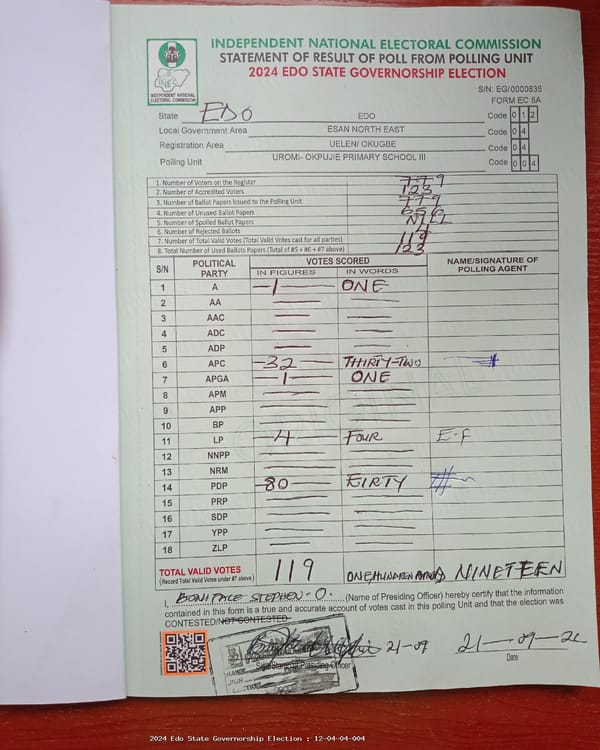 INDEPENDENT NATIONAL ELECTORAL COMMISSION
STATEMENT OF RESULT OF POLL FROM POLLING UNIT
2024 EDO STATE GOVERNORSHIP ELECTION
INEC
INDEPENDENT NATIONAL ELECTORAL COMMISSION
S/N: EG/0000835
FORM EC 8A
State EDO EDO Code 0 1 2
Local Government Area ESAN NORTH EAST Code 0 4
Registration Area UELEN/ OKUGBE Code 0 4
Polling Unit UROMI- OKPUJIE PRIMARY SCHOOL III Code 0 0 4
1. Number of Voters on the Register 779
2. Number of Accredited Voters 123
3. Number of Ballot Papers Issued to the Polling Unit 779
4. Number of Unused Ballot Papers 656
5. Number of Spoiled Ballot Papers NIL
6. Number of Rejected Ballots 4
7. Number of Total Valid Votes (Total Valid Votes cast for all parties) 119
8. Total Number of Used Ballots Papers (Total of #5 + #6 + #7 above) 123
S/N POLITICAL PARTY VOTES SCORED NAME/SIGNATURE OF POLLING AGENT
IN FIGURES IN WORDS
1 A 1 ONE
2 AA
3 AAC
4 ADC
5 ADP
6 APC 32 THIRTY-TWO
7 APGA 1 ONE
8 APM
9 APP
10 BP
11 LP 4 FOUR E-F
12 NNPP
13 NRM
14 PDP 80 EIRTY
15 PRP
16 SDP
17 YPP
18 ZLP
TOTAL VALID VOTES 119 NINETEEN
(Record Total Valid Votes under #7 above)
I, BONIFACE STEPHEN-O. (Name of Presiding Officer) hereby certify that the information
contained in this form is a true and accurate account of votes cast in this polling Unit and that the election was
CONTESTED/NOT CONTESTED.
21-09 21-09-2
Presiding Officer Date
2024 Edo State Governorship Election : 12-04-04-004